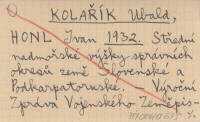 KOLAŘÍK Ubald,
HONL Ivan 1932. Střední
nadmořské výšky správních
okresů země Slovenské a
Podkarpatoruské. — Výroční
Zpráva Vojenského Zeměpis-